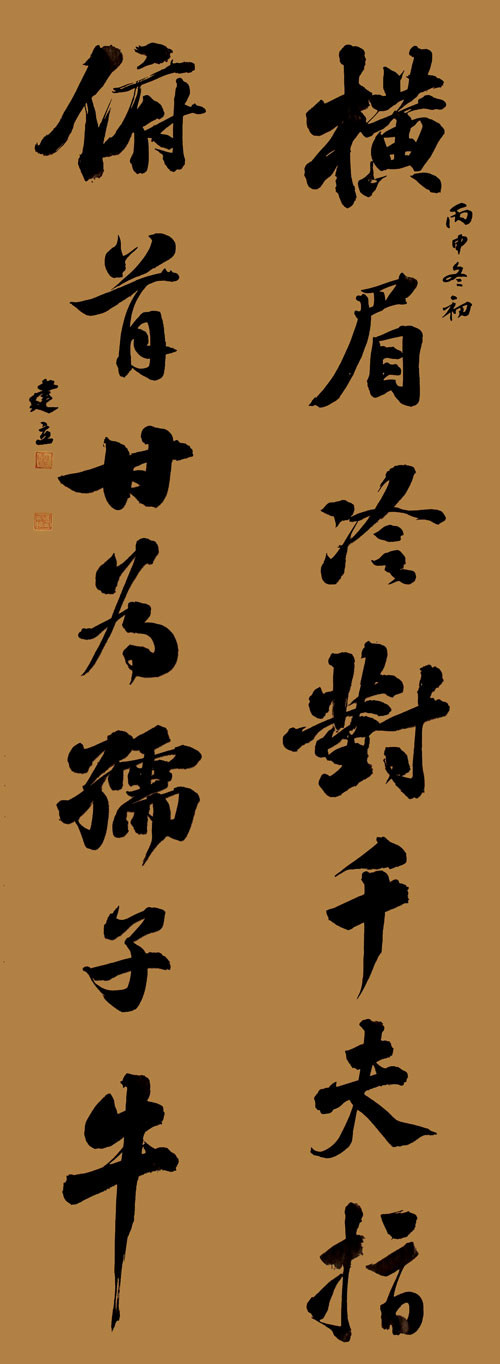 橫眉冷對千夫指
丙申冬初
俯首甘为孺子牛
建立